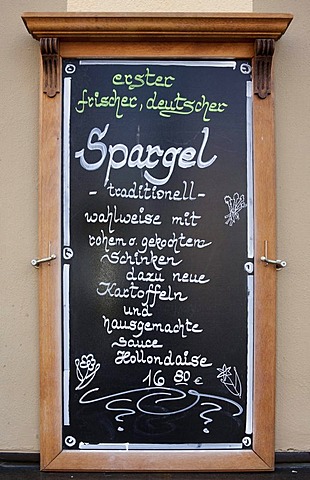 erster
frischer, deutscher
Spargel
- traditionell -
wahlweise mit
rohem o. gekochten
Schinken
dazu neue
Kartoffeln
und
hausgemachte
Sauce
Hollondaise
16 80 €